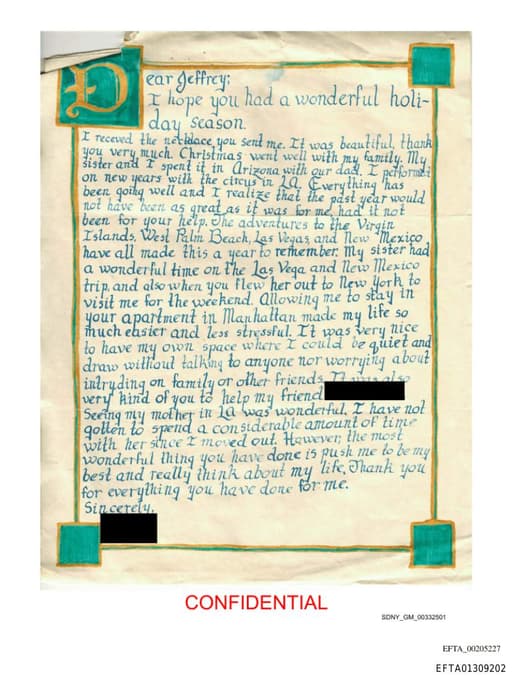 Dear Jeffrey;
I hope you had a wonderful holi-
day season.
I receved the necklace you sent me. It was beautiful, thank
you very much. Christmas went well with my family. My
sister and I spent it in Arizona with our dad. I performed
on new years with the circus in LA. Everything has
been going well and I realize that the past year would
not have been as great as it was for me, had it not
been for your help. The adventures to the Virgin
Islands, West Palm Beach, Las Vegas, and New Mexico
have all made this a year to remember. My sister had
a wonderful time on the Las Vega and New Mexico
trip, and also when you flew her out to New York to
visit me for the weekend. Allowing me to stay in
your apartment in Manhattan made my life so
much easier and less stressful. It was very nice
to have my own space where I could be quiet and
draw without talking to anyone nor worrying about
intruding on family or other friends. It was also
very kind of you to help my friend
Seeing my mother in La was wonderful, I have not
gotten to spend a considerable amount of time
with her since I moved out. However, the most
wonderful thing you have done is push me to be my
best and really think about my life, Thank you
for everything you have done for me.
Sincerely,
CONFIDENTIAL
SDNY_GM_00332501
EFTA_00205227
EFTA01309202